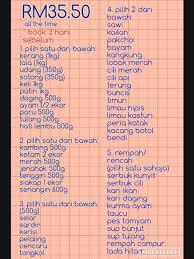 RM35.50
all the time
book 3 hari
sebelum
1. pilih satu dari bawah:
kerang (1kg)
lala (1kg)
udang (350g)
sotong (350g)
keli 1kg
patin 1kg
daging 500g
ayam 1/2 ekor
paru 500g
tulang 500g
hati lembu 500g
2. pilih satu dari bawah:
kambing 500g
ketam 2 ekor
merah 500g
jenahak 500g
tenggiri 500g
siakap 1 ekor
selengat 600g
3. pilih satu dari bawah
(500g)
selar
sardin
kerisi
pelaling
tongkol
4. pilih 2 dari
bawah:
sawi
kailan
pakchoi
bayam
kangkung
lobak merah
cili merah
cili api
terung
buncis
timun
limau nipis
limau kasturi
peria katak
kacang botol
bendi
5. rempah/
rencah
(pilih satu sahaja)
serbuk kunyit
serbuk cili
kari ikan
kari daging
kurma ayam
taucu
tomyam
sup bunjut
sup tulang
rempah campur
lada hitam